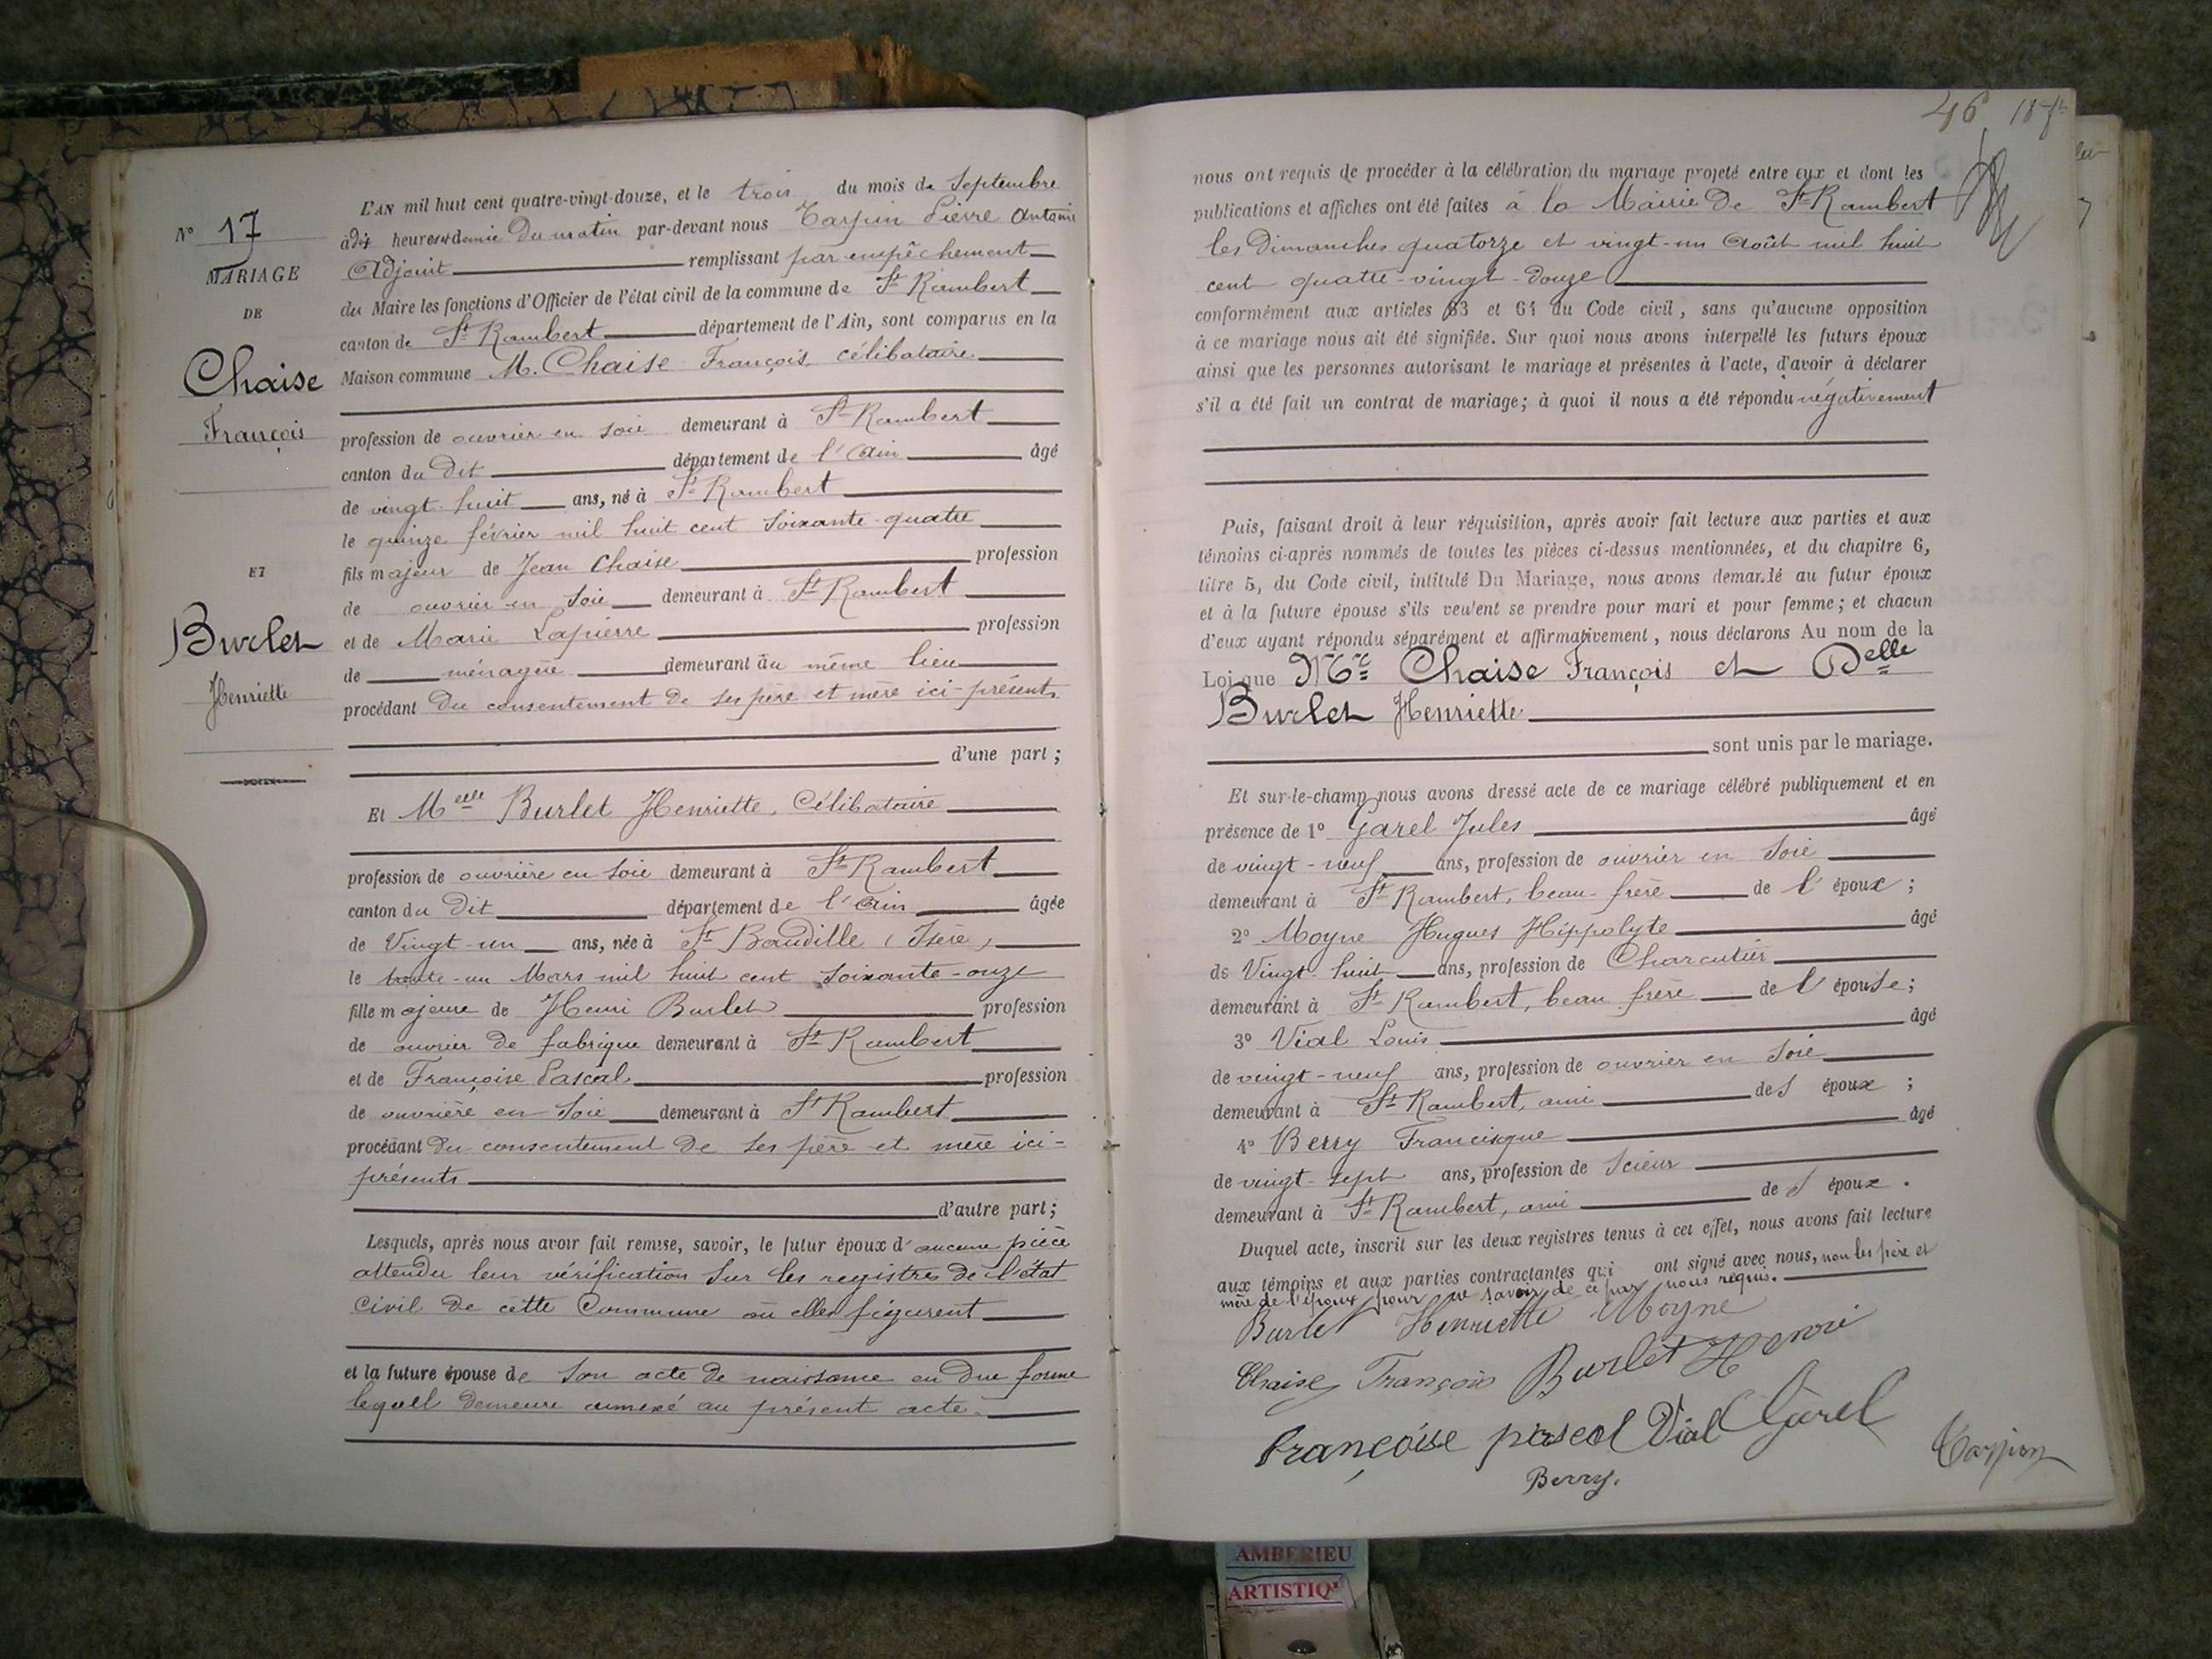 N° 17
MARIAGE
DE
Chaise
François
ET
Burlet
Henriette
L'AN mil huit cent quatre-vingt-douze, et le trois du mois de Septembre
à dix heures et demie du matin par-devant nous Tarpin Pierre Antoine
Adjoint remplissant par empêchement
du Maire les fonctions d'Officier de l'état civil de la commune de St Rambert
canton de St Rambert département de l'Ain, sont comparus en la
Maison commune M. Chaise François, célibataire
profession de ouvrier en soie demeurant à St Rambert
canton du dit département de l'Ain âgé
de vingt-huit ans, né à St Rambert
le quinze février mil huit cent soixante-quatre
fils majeur de Jean Chaise profession
de ouvrier en soie demeurant à St Rambert
et de Marie Lapierre profession
de ménagère demeurant au même lieu
procédant du consentement de ses père et mère ici-présents
d'une part ;
Et Melle Burlet Henriette, Célibataire
profession de ouvrière en soie demeurant à St Rambert
canton du dit département de l'Ain âgée
de Vingt-un ans, née à St Baudille (Isère)
le trente-un Mars mil huit cent soixante-onze
fille majeure de Henri Burlet profession
de ouvrier de fabrique demeurant à St Rambert
et de Françoise Pascal profession
de ouvrière en soie demeurant à St Rambert
procédant du consentement de ses père et mère ici-
présents
d'autre part ;
Lesquels, après nous avoir fait remise, savoir, le futur époux d'aucune pièce
attendu leur vérification sur les registres de l'état
civil de cette Commune où elles figurent
et la future épouse de son acte de naissance en due forme
lequel demeure annexé au présent acte.
46
nous ont requis de procéder à la célébration du mariage projeté entre eux et dont les
publications et affiches ont été faites à la Mairie de St Rambert
les Dimanches quatorze et vingt-un Août mil huit
cent quatre-vingt-douze
conformément aux articles 63 et 64 du Code civil, sans qu'aucune opposition
à ce mariage nous ait été signifiée. Sur quoi nous avons interpellé les futurs époux
ainsi que les personnes autorisant le mariage et présentes à l'acte, d'avoir à déclarer
s'il a été fait un contrat de mariage ; à quoi il nous a été répondu négativement
Puis, faisant droit à leur réquisition, après avoir fait lecture aux parties et aux
témoins ci-après nommés de toutes les pièces ci-dessus mentionnées, et du chapitre 6,
titre 5, du Code civil, intitulé Du Mariage, nous avons demandé au futur époux
et à la future épouse s'ils veulent se prendre pour mari et pour femme ; et chacun
d'eux ayant répondu séparément et affirmativement, nous déclarons Au nom de la
Loi que Mr Chaise François et Delle
Burlet Henriette
sont unis par le mariage.
Et sur-le-champ nous avons dressé acte de ce mariage célébré publiquement et en
présence de 1° Garel Jules âgé
de vingt-neuf ans, profession de ouvrier en soie
demeurant à St Rambert, beau-frère de l'époux ;
2° Moyne Hugues Hippolyte âgé
de Vingt-huit ans, profession de Charcutier
demeurant à St Rambert, beau frère de l'épouse ;
3° Vial Louis âgé
de vingt-neuf ans, profession de ouvrier en soie
demeurant à St Rambert, ami des époux ;
4° Berry Francisque âgé
de vingt-sept ans, profession de Scieur
demeurant à St Rambert, ami des époux.
Duquel acte, inscrit sur les deux registres tenus à cet effet, nous avons fait lecture
aux témoins et aux parties contractantes qui ont signé avec nous, non les père et
mère de l'époux pour ne savoir, de ce par nous requis.
Burlet Henriette Moyne
Chaise François Burlet Henri
Françoise pascal Vial Garel
Berry. Tarpin
AMBERIEU
ARTISTIQ